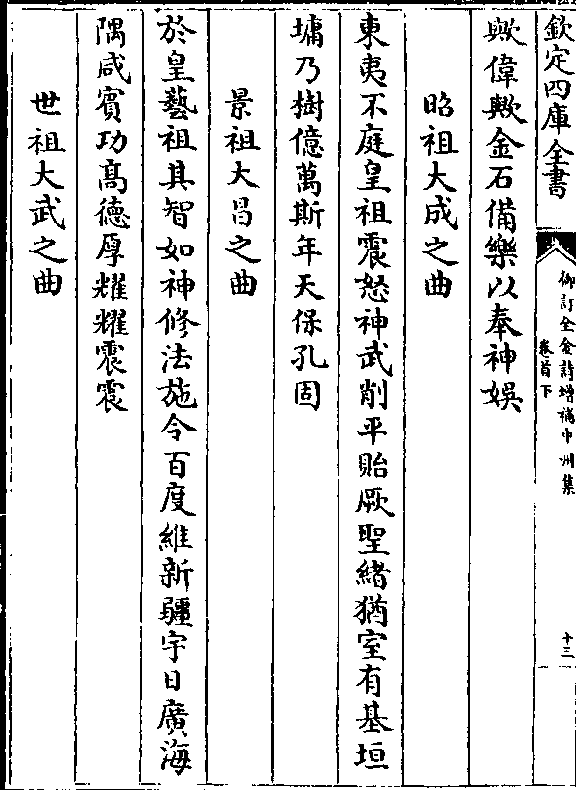 欽定四庫全書
御訂全金詩增補中州集
卷首下
十三
歟偉歟金石備樂以奉神娛
昭祖大成之曲
東夷不庭皇祖震怒神武削平貽厥聖緒猶室有基垣
墉乃樹億萬斯年天保孔固
景祖大昌之曲
於皇藝祖其智如神修法施令百度維新疆宇日廣海
隅咸賓功髙德厚耀耀震震
世祖大武之曲